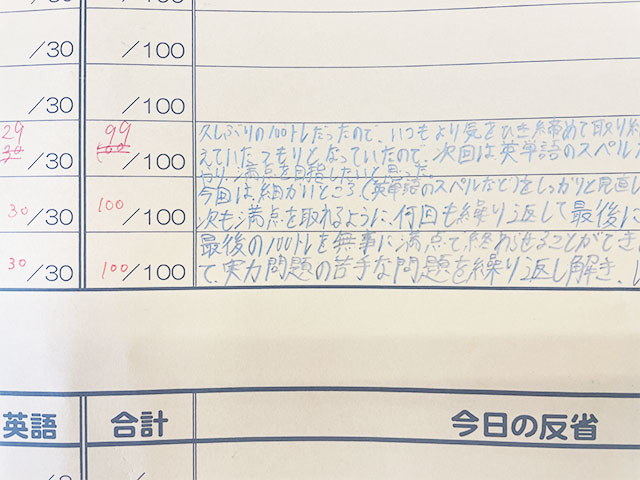 /30
/30 /100
/30 /100
29 99
30 100
/30 /100
久しぶりの100トレだったので、いつもより気をひき締めて取り
えていたつもりとなっていたので、次回は英単語のスペル
満点を目指したいと思った。
30/30 100/100
今回は、細かいところ(英単語のスペルなど)をしっかりと見直し
次も満点を取れるように、何回も繰り返して最後に
30/30 100/100
最後の100トレを無事に満点で終わらせることができ
て、実力問題の苦手な問題を繰り返し解き、
英語 合計 今日の反省